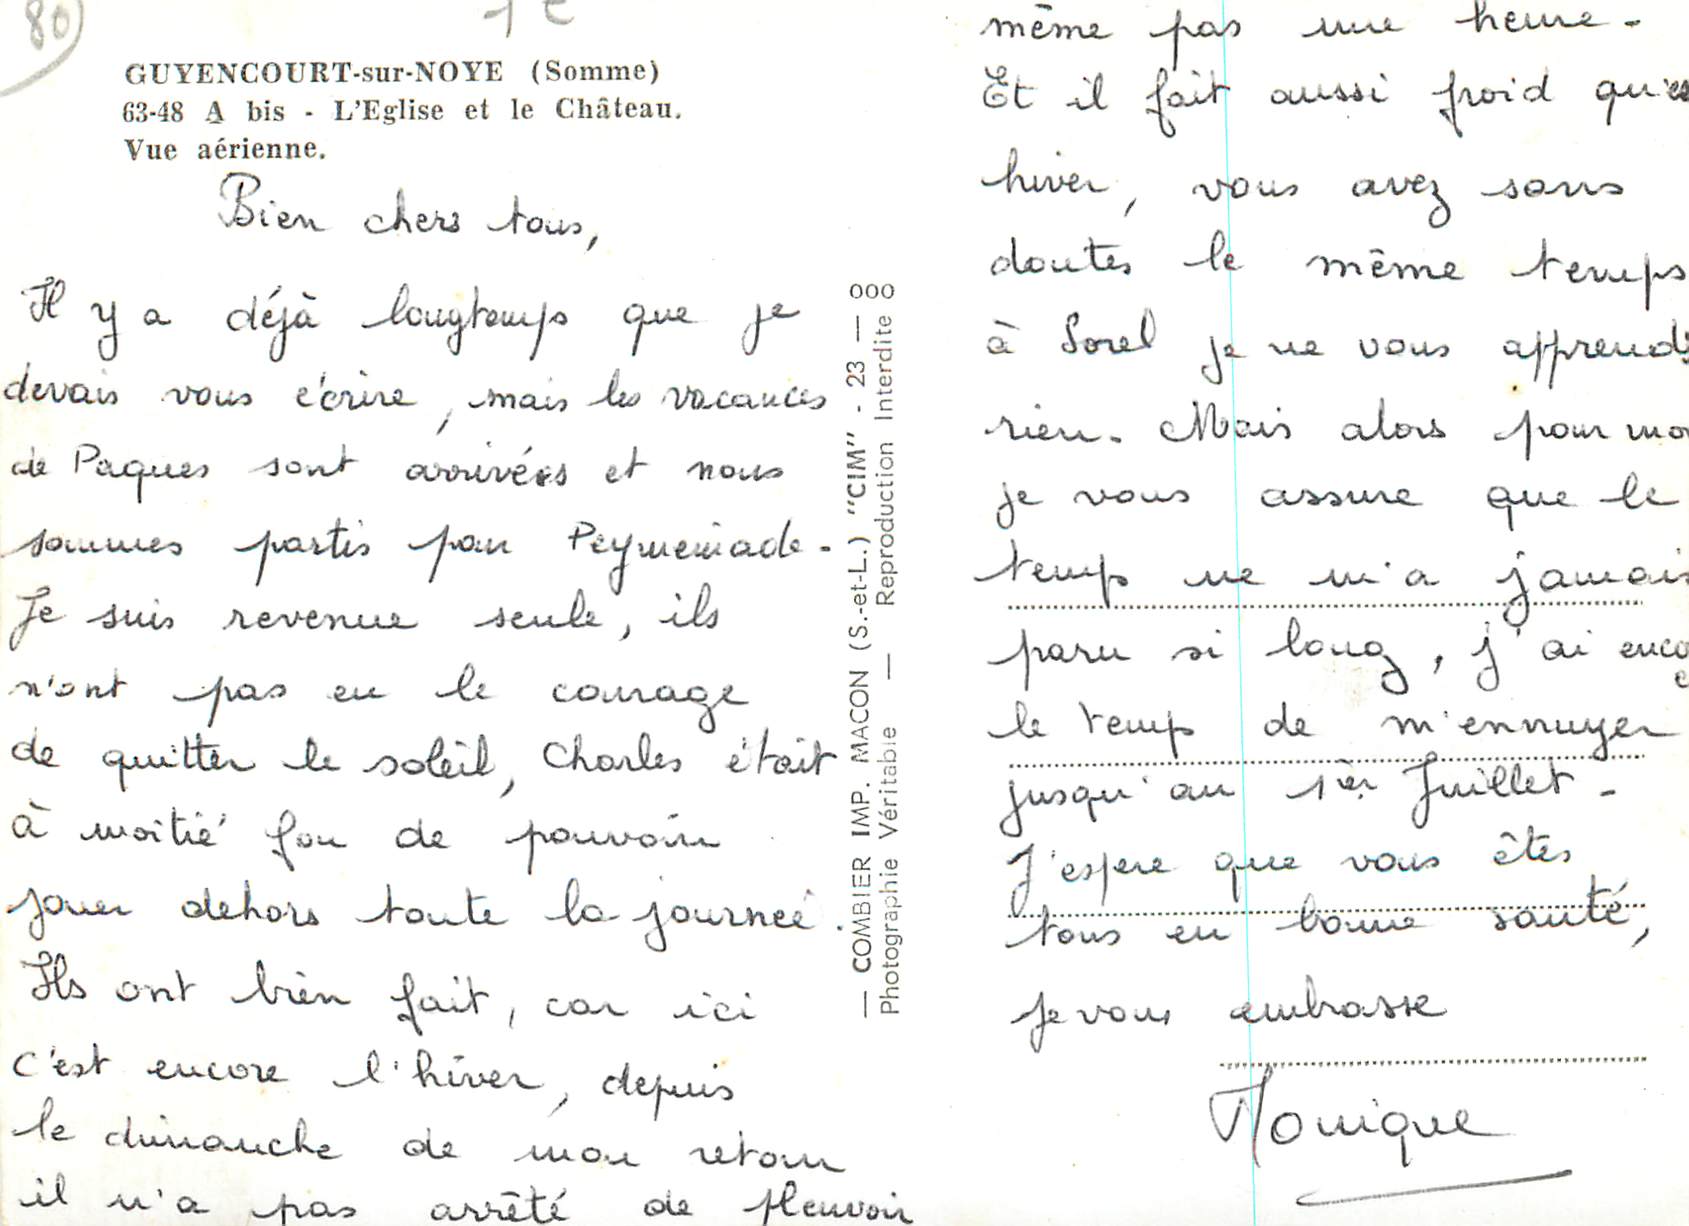 80
1 €
GUYENCOURT-sur-NOYE (Somme)
63-48 A bis - L'Eglise et le Château.
Vue aérienne.
Bien chers tous,
Il y a déjà longtemps que je
devais vous écrire, mais les vacances
de Paques sont arrivées et nous
sommes partis pour Peymeinade.
Je suis revenue seule, ils
n'ont pas eu le courage
de quitter le soleil, Charles était
à moitié fou de pouvoir
jouer dehors toute la journeé.
Ils ont bien fait, car ici
c'est encore l'hiver, depuis
le dimanche de mon retour
il n'a pas arrêté de pleuvoir
— COMBIER IMP. MACON (S.-et-L.) "CIM" - 23 — 000
Photographie Véritable — Reproduction Interdite
même pas une heure -
Et il fait aussi froid qu'en
hiver, vous avez sans
doutes le même temps
à Sorel je ne vous apprends
rien. Mais alors pour moi
je vous assure que le
temps ne m'a jamais
paru si long, j'ai enco
le temps de m'ennuyer
jusqu'au 1er Juillet -
J'espere que vous êtes
tous en bonne santé,
je vous embrasse
Monique